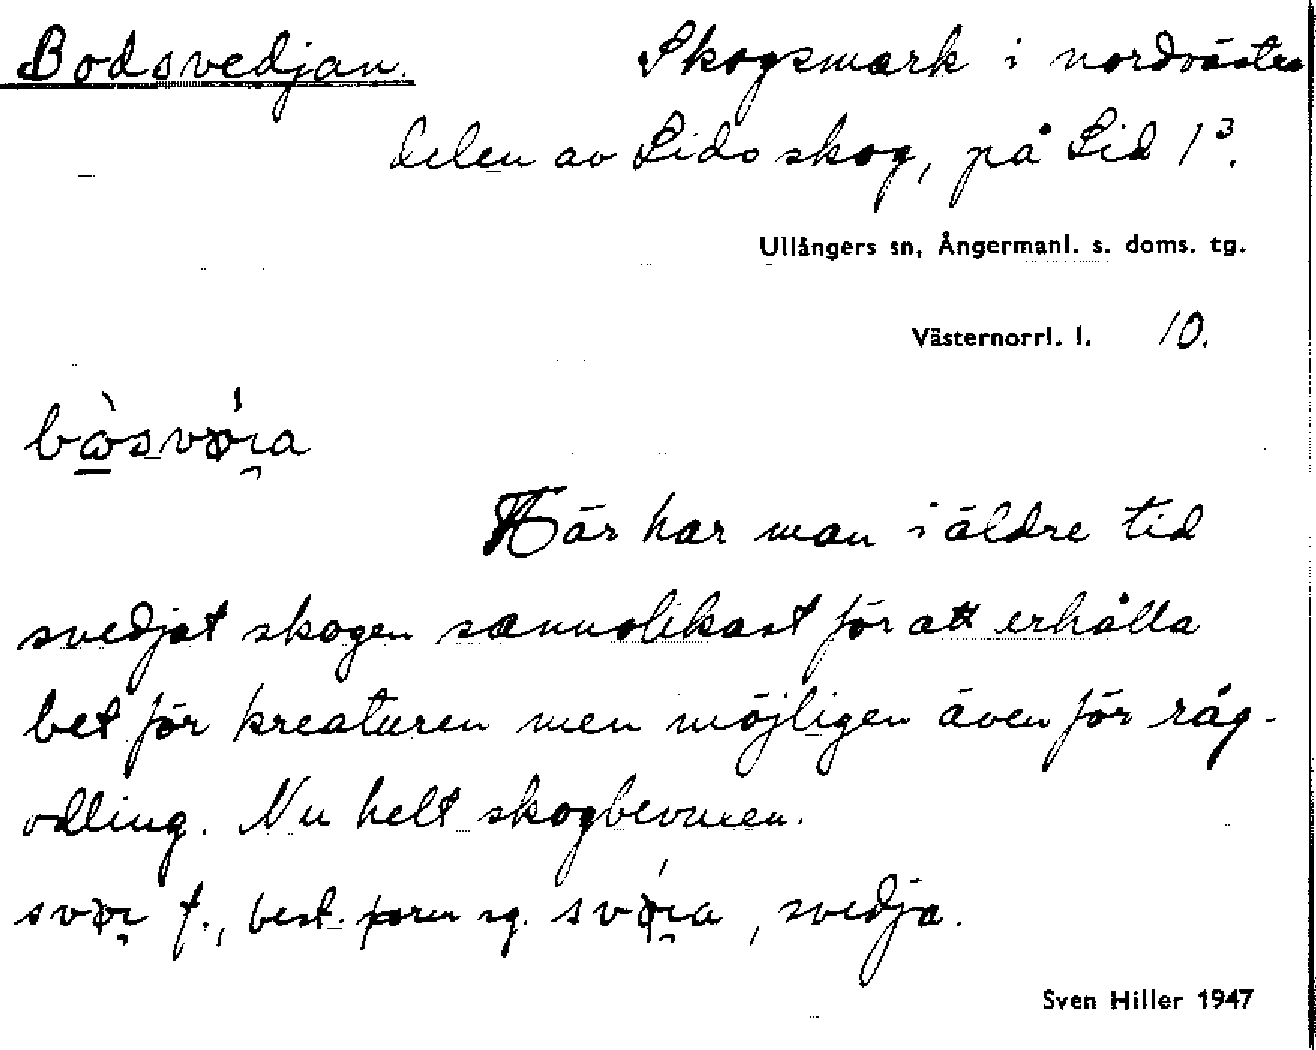 Bodsvedjan. Skogsmark i nordvästra
delen av Lids skog, på Lid 1³.
Ullångers sn, Ångermanl. s. doms. tg.
Västernorrl. l. 10.
Här har man i äldre tid
svedjat skogen sannolikast för att erhålla
bet för kreaturen men möjligen även för råg-
odling. Nu helt skogbevuxen.
f., best. form sg. , svedja.
Sven Hiller 1947